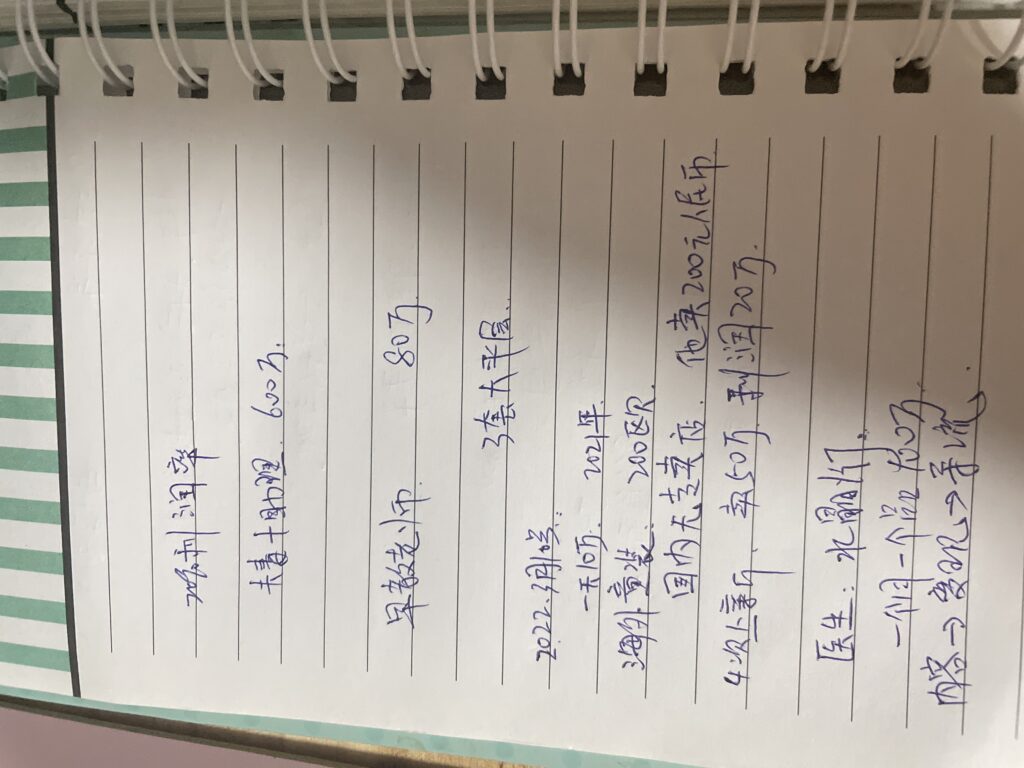 20%利润率
夫妻+助理. 600万.
早教老师. 80万.
3套大平层..
2022.3月10号.
一天10万. 2021年.
海外童装: 200欧.
国内无专卖店. 他卖200元人民币.
4次上新, 卖50万 利润20万.
医生: 水晶灯.
一个月一个品 100万.
内容→变现→导流.